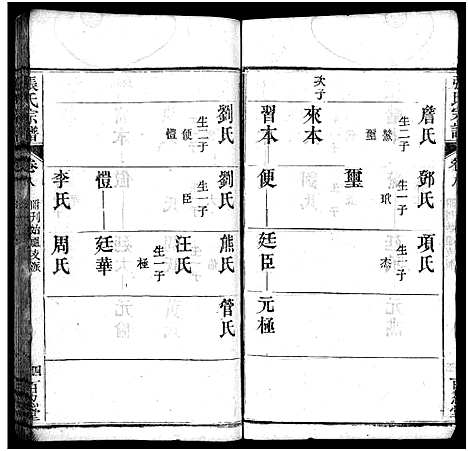 張氏宗譜
卷八
詹氏
生二子
鰲
璽
來本
次子
習本
劉氏
生二子
便
愷
鄧氏
生一子
玳
璽
便
劉氏
生一子
臣
愷
李氏
項氏
生一子
杰
廷臣
元極
熊氏
汪氏
生一子
極
廷華
周氏
管氏
張氏宗譜
卷八
四
百忍堂